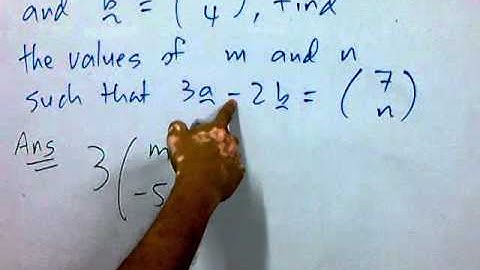 and b = ( 4 ), find
the values of m and n
such that 3a - 2b = ( 7 n )
Ans 3 ( m -5